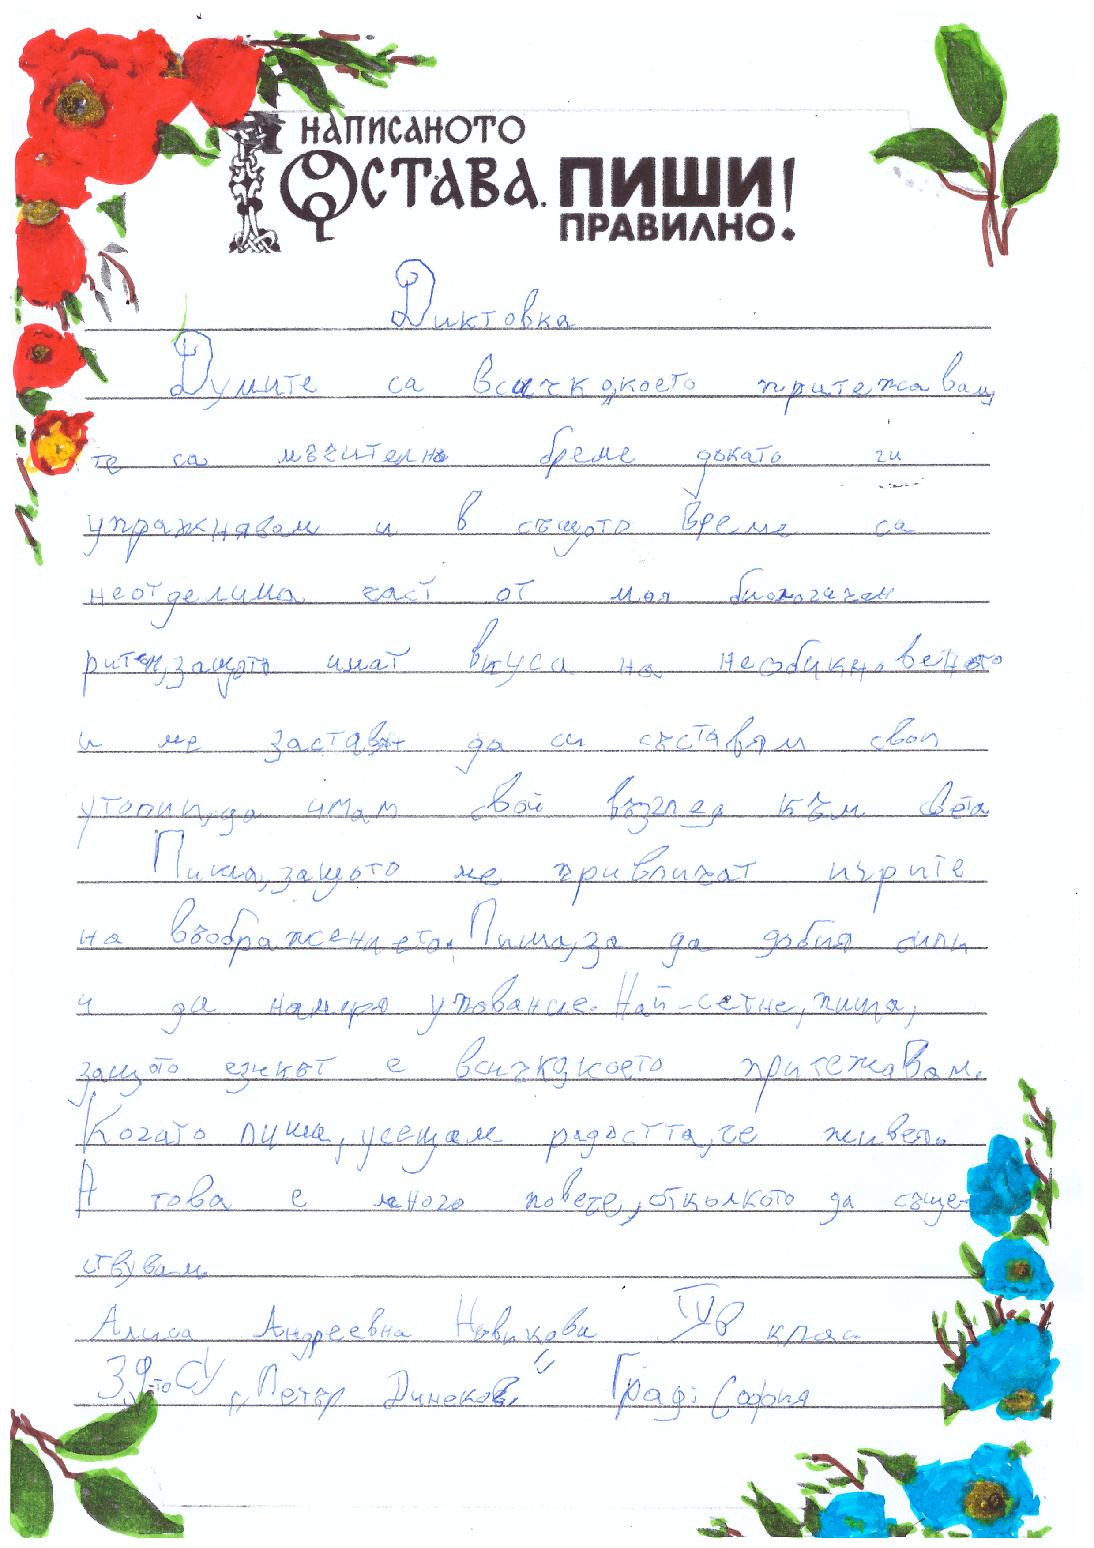 НАПИСАНОТО
ОСТАВА. ПИШИ!
ПРАВИЛНО.
Диктовка
Думите са всичко, което притежавам,
те са мъчително бреме докато ги
упражнявам и в същото време са
неотделима част от моя биологичен
ритъм, защото имат вкуса на необикновеното
и ме заставят да си съставям свои
утопии, да имам свой възглед към света
Пиша, защото ме привличат игрите
на въображението. Пиша, за да добия сили
и да намеря упование. Най-сетне, пиша,
защото езикът е всичко, което притежавам.
Когато пиша, усещам радостта, че живея.
А това е много повече, отколкото да същест
ствувам.
Алиса Андреевна Новикова IVв клас
39-то СУ „Петър Динеков" Град: София